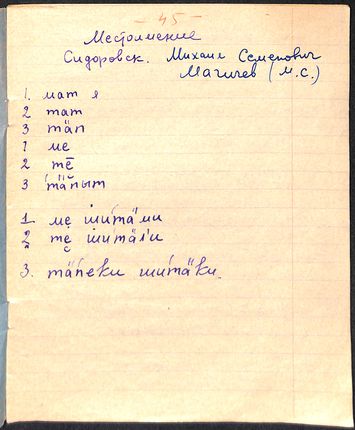 - 45 -
Местоимение
Сидоровск. Михаил Семенович
Магичев (М.С.)
1. мат я
2 тат
3 тӓп
1 ме
2 тē
3 тӓпыт
1. ме шитӓми
2 те шитӓли
3. тӓпеки шитӓки.